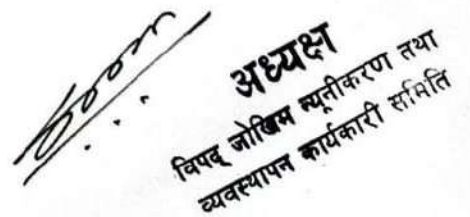 अध्यक्ष
विपद् जोखिम न्यूनीकरण तथा
व्यवस्थापन कार्यकारी समिति